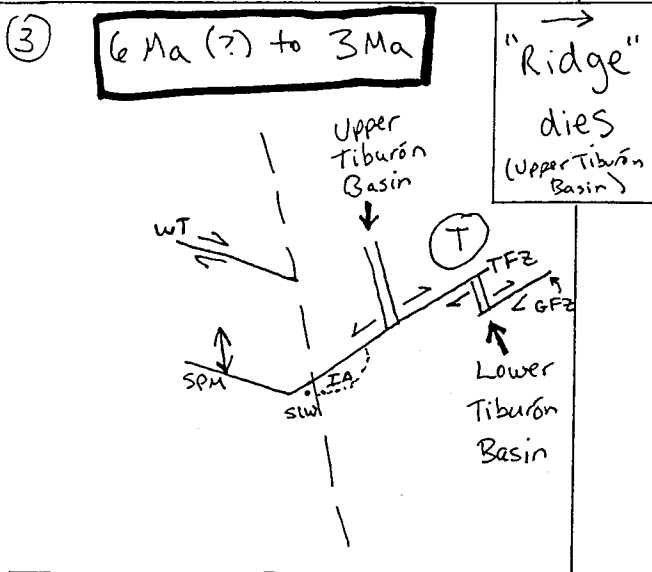 3
6 Ma (?) to 3 Ma
"Ridge"
dies
(Upper Tiburón
Basin)
Upper
Tiburón
Basin
WT
T
TFZ
GFZ
SPM
IA
SIW
Lower
Tiburón
Basin